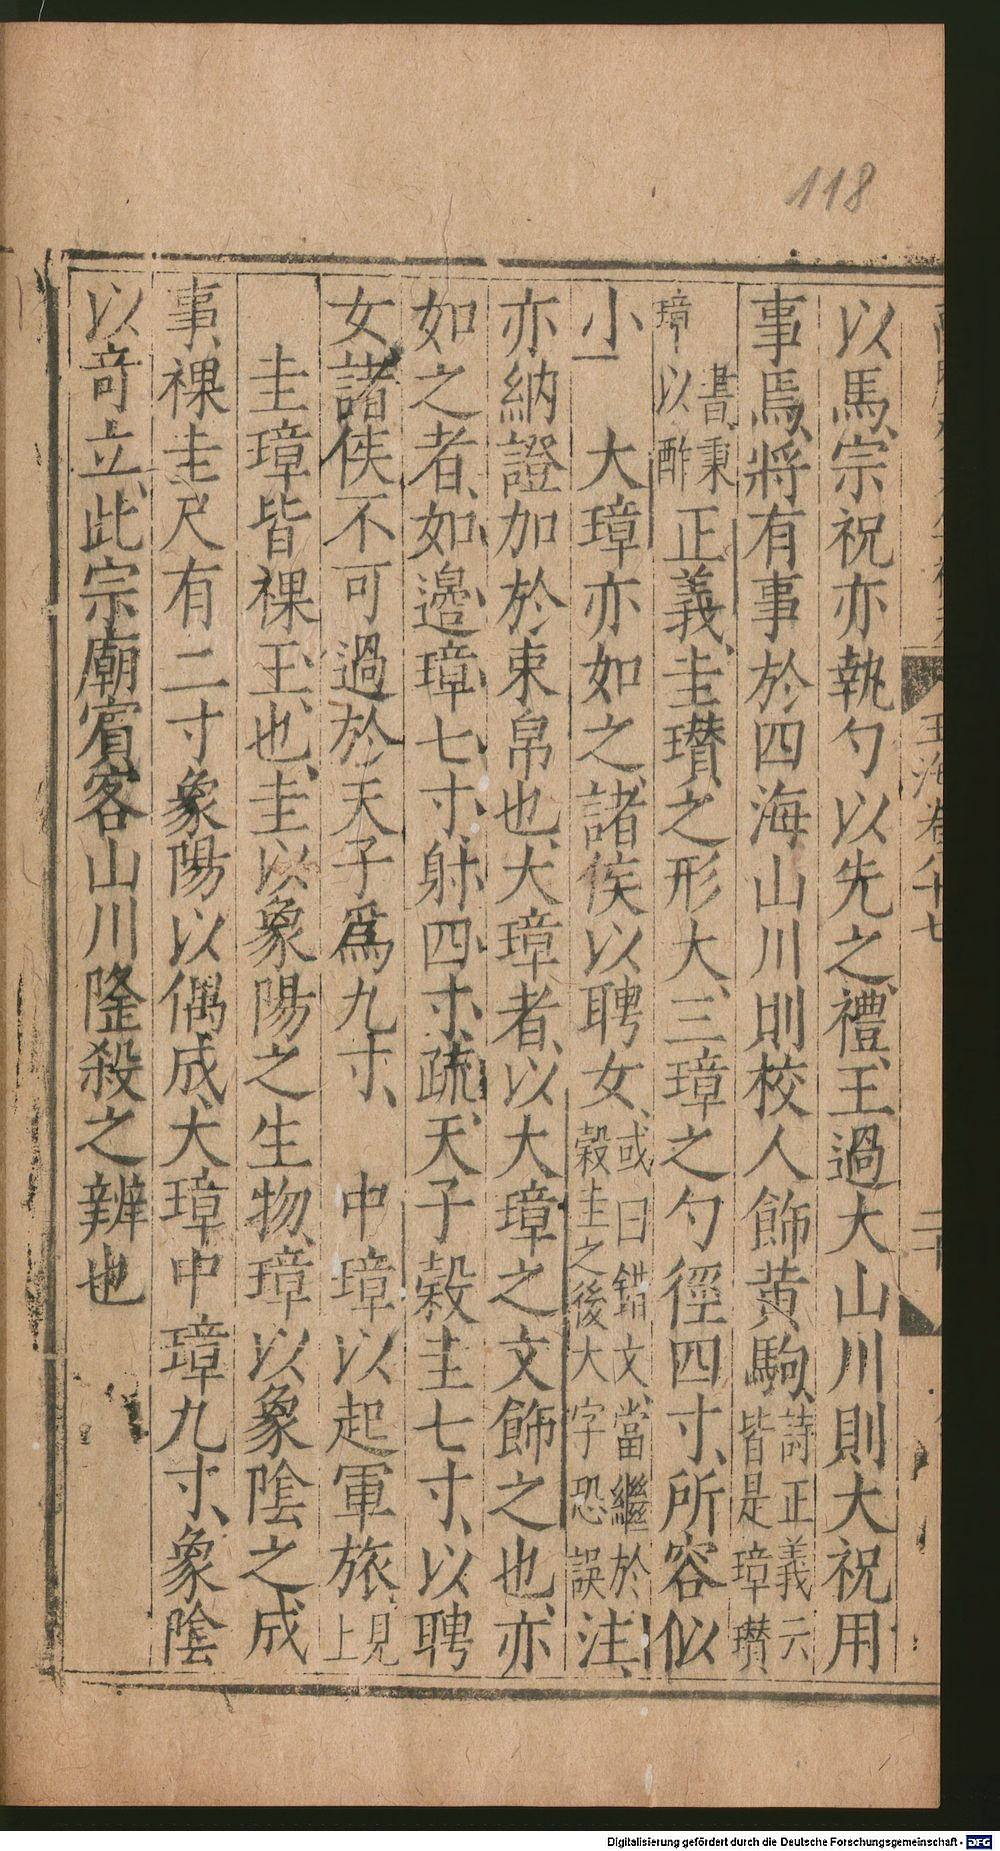 118
玉海卷八十七
二十
以馬宗祝亦執勺以先之禮王過大山川則大祝用
事焉將有事於四海山川則校人飾黃駒詩正義云皆是璋瓚
書秉璋以酢 正義圭瓚之形大三璋之勺徑四寸所容似
小 大璋亦如之諸侯以聘女或曰錯文當繼於穀圭之後大字恐誤注
亦納證加於束帛也大璋者以大璋之文飾之也亦
如之者如邉璋七寸射四寸疏天子穀圭七寸以聘
女諸侯不可過於天子爲九寸 中璋以起軍旅見上
圭璋皆祼玉也圭以象陽之生物璋以象陰之成
事祼圭尺有二寸象陽以偶成大璋中璋九寸象陰
以竒立此宗廟賓客山川隆殺之辨也
Digitalisierung gefördert durch die Deutsche Forschungsgemeinschaft - DFG